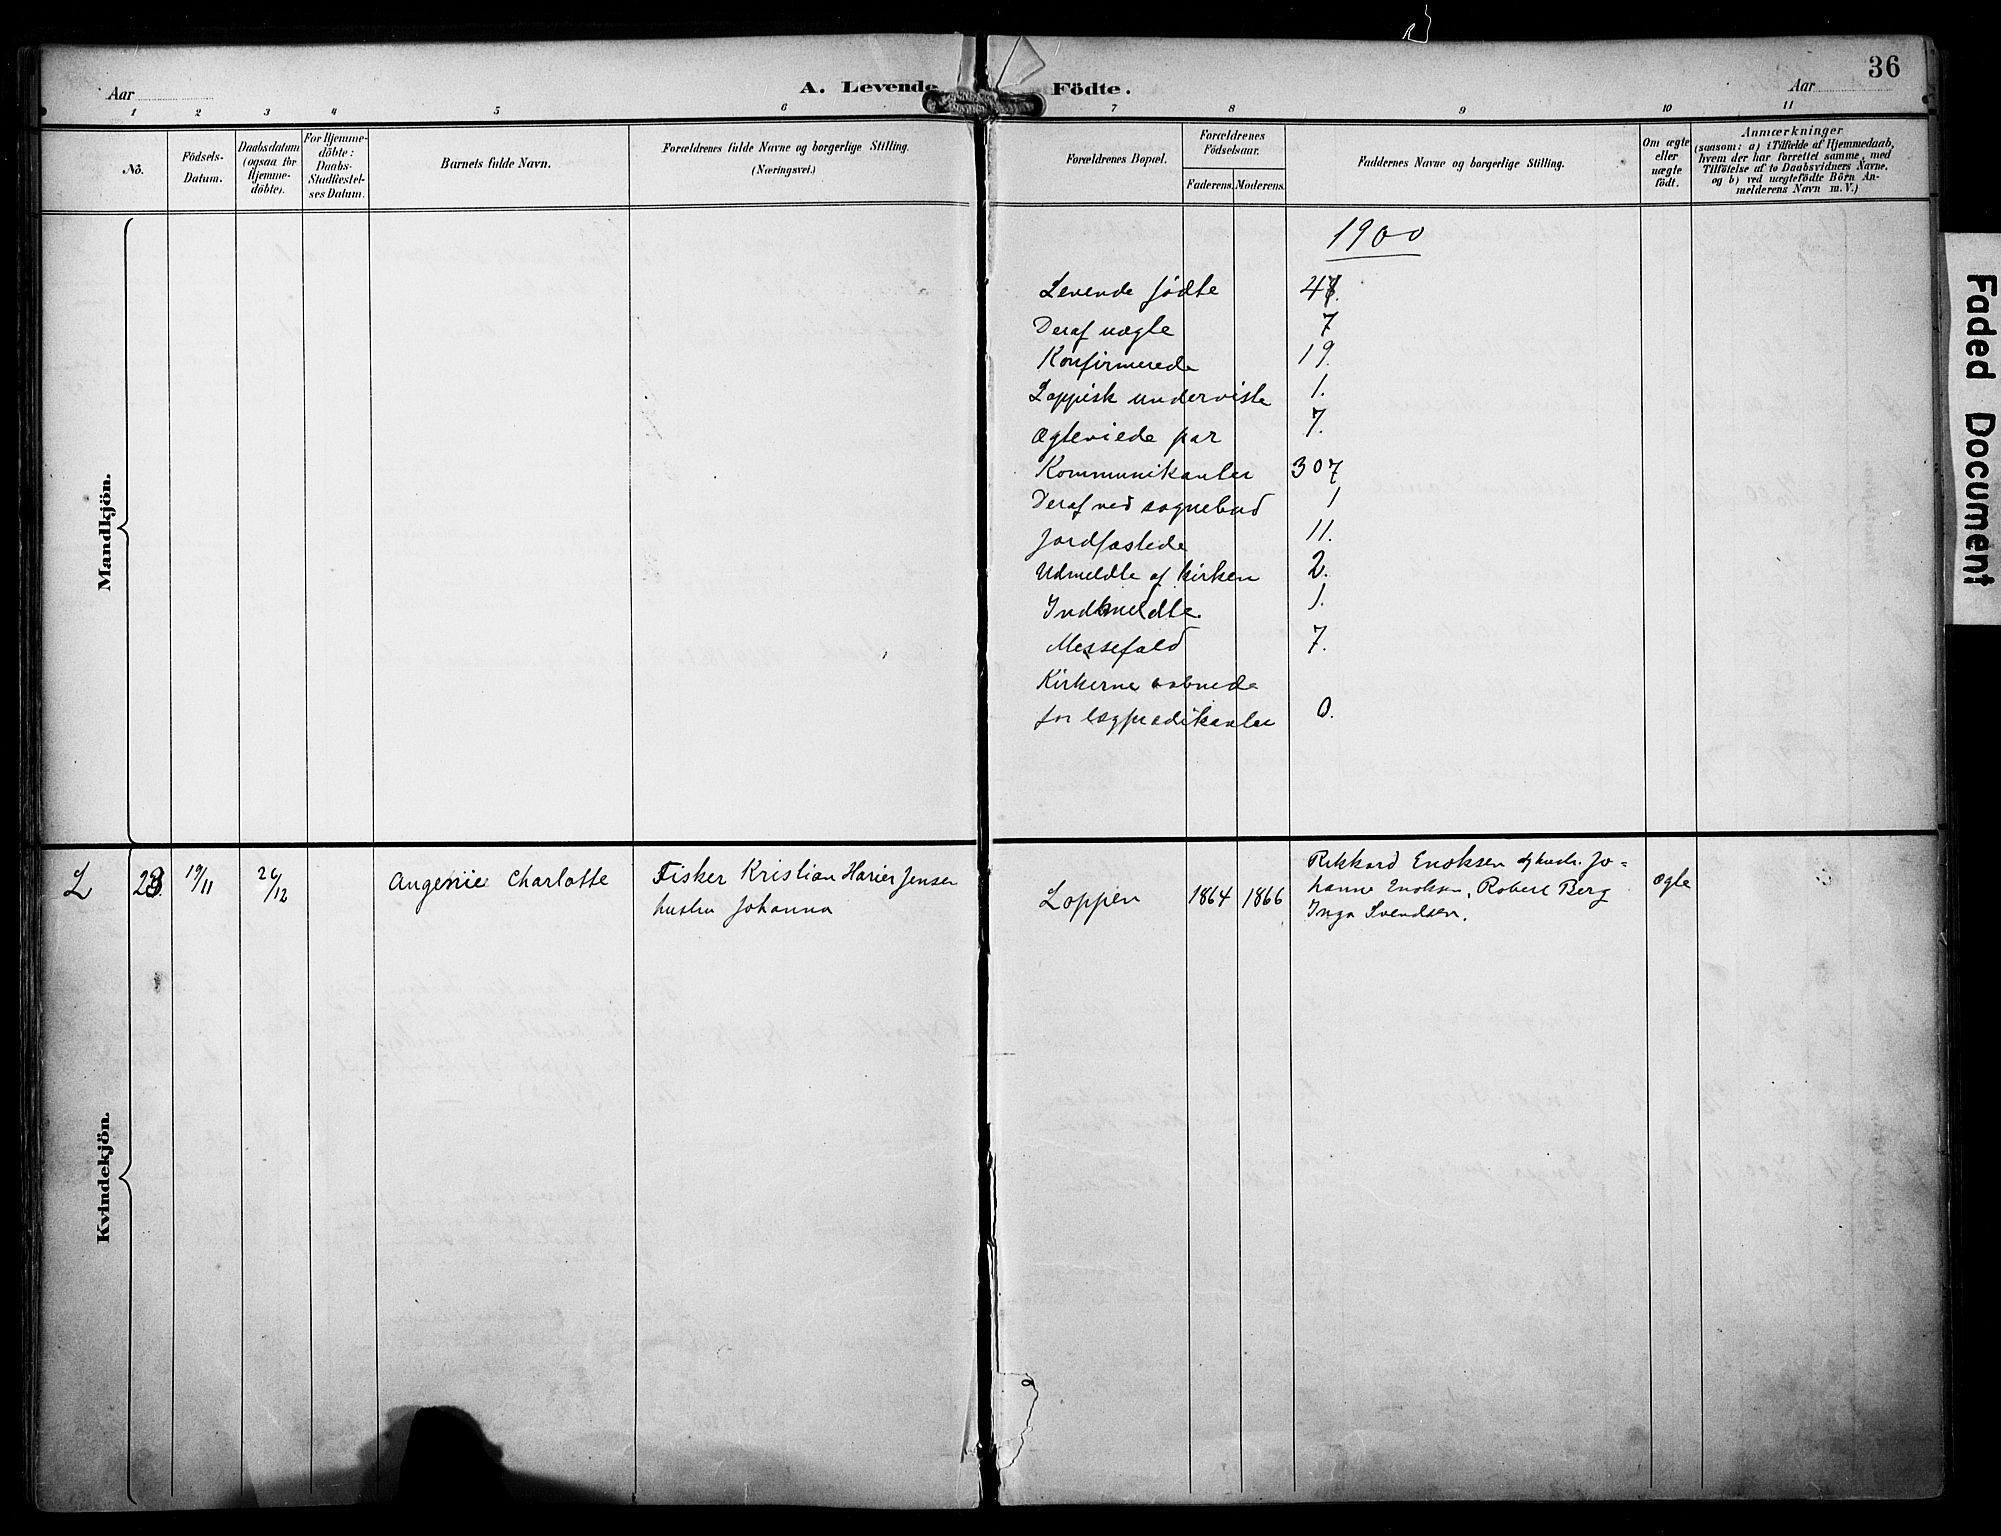 36
Aar
A. Levende
Födte.
Aar
1 2 3 4 5 6 7 8 9 10 11
No.
Födsels-
Datum.
Daabsdatum
(ogsaa for
Hjemme-
döbte).
For Hjemme-
döbte:
Daabs-
Stadfæstel-
ses Datum.
Barnets fulde Navn.
Forældrenes fulde Navne og borgerlige Stilling.
(Næringsvei.)
Forældrenes Bopæl.
Forældrenes
Födselsaar.
Faderens.
Moderens.
Faddernes Navne og borgerlige Stilling.
Om ægte
eller
uægte
födt.
Anmærkninger
(saasom: a) i Tilfælde af Hjemmedaab,
hvem der har forrettet samme, med
Tilföielse af to Daabsvidners Navne.
og b) ved uægtefödte Börn An-
melderens Navn m. V.)
Mandkjön.
1900
Levende fødte
Deraf uægte 7
Konfirmerede 19.
Lappisk underviste 1.
Ægteviede par 7.
Kommunikanter 307
Deraf ved sognebud 1
Jordfæstede 11.
Udmeldte af kirken 2.
Indmeldte. 1.
Messefald 7.
Kirkerne aabnede
for lægprædikanter 0.
Kvindekjön.
L 23. 19/11 26/12 Angenie Charlotte Fisker Kristian Jensen
hustru Johanna
Loppen 1864 1866
Rikkard Enoksen og hustr. Jo=
hanna Enoksen, Robert Berg
Inga Svendsen.
Ægte
Faded Document